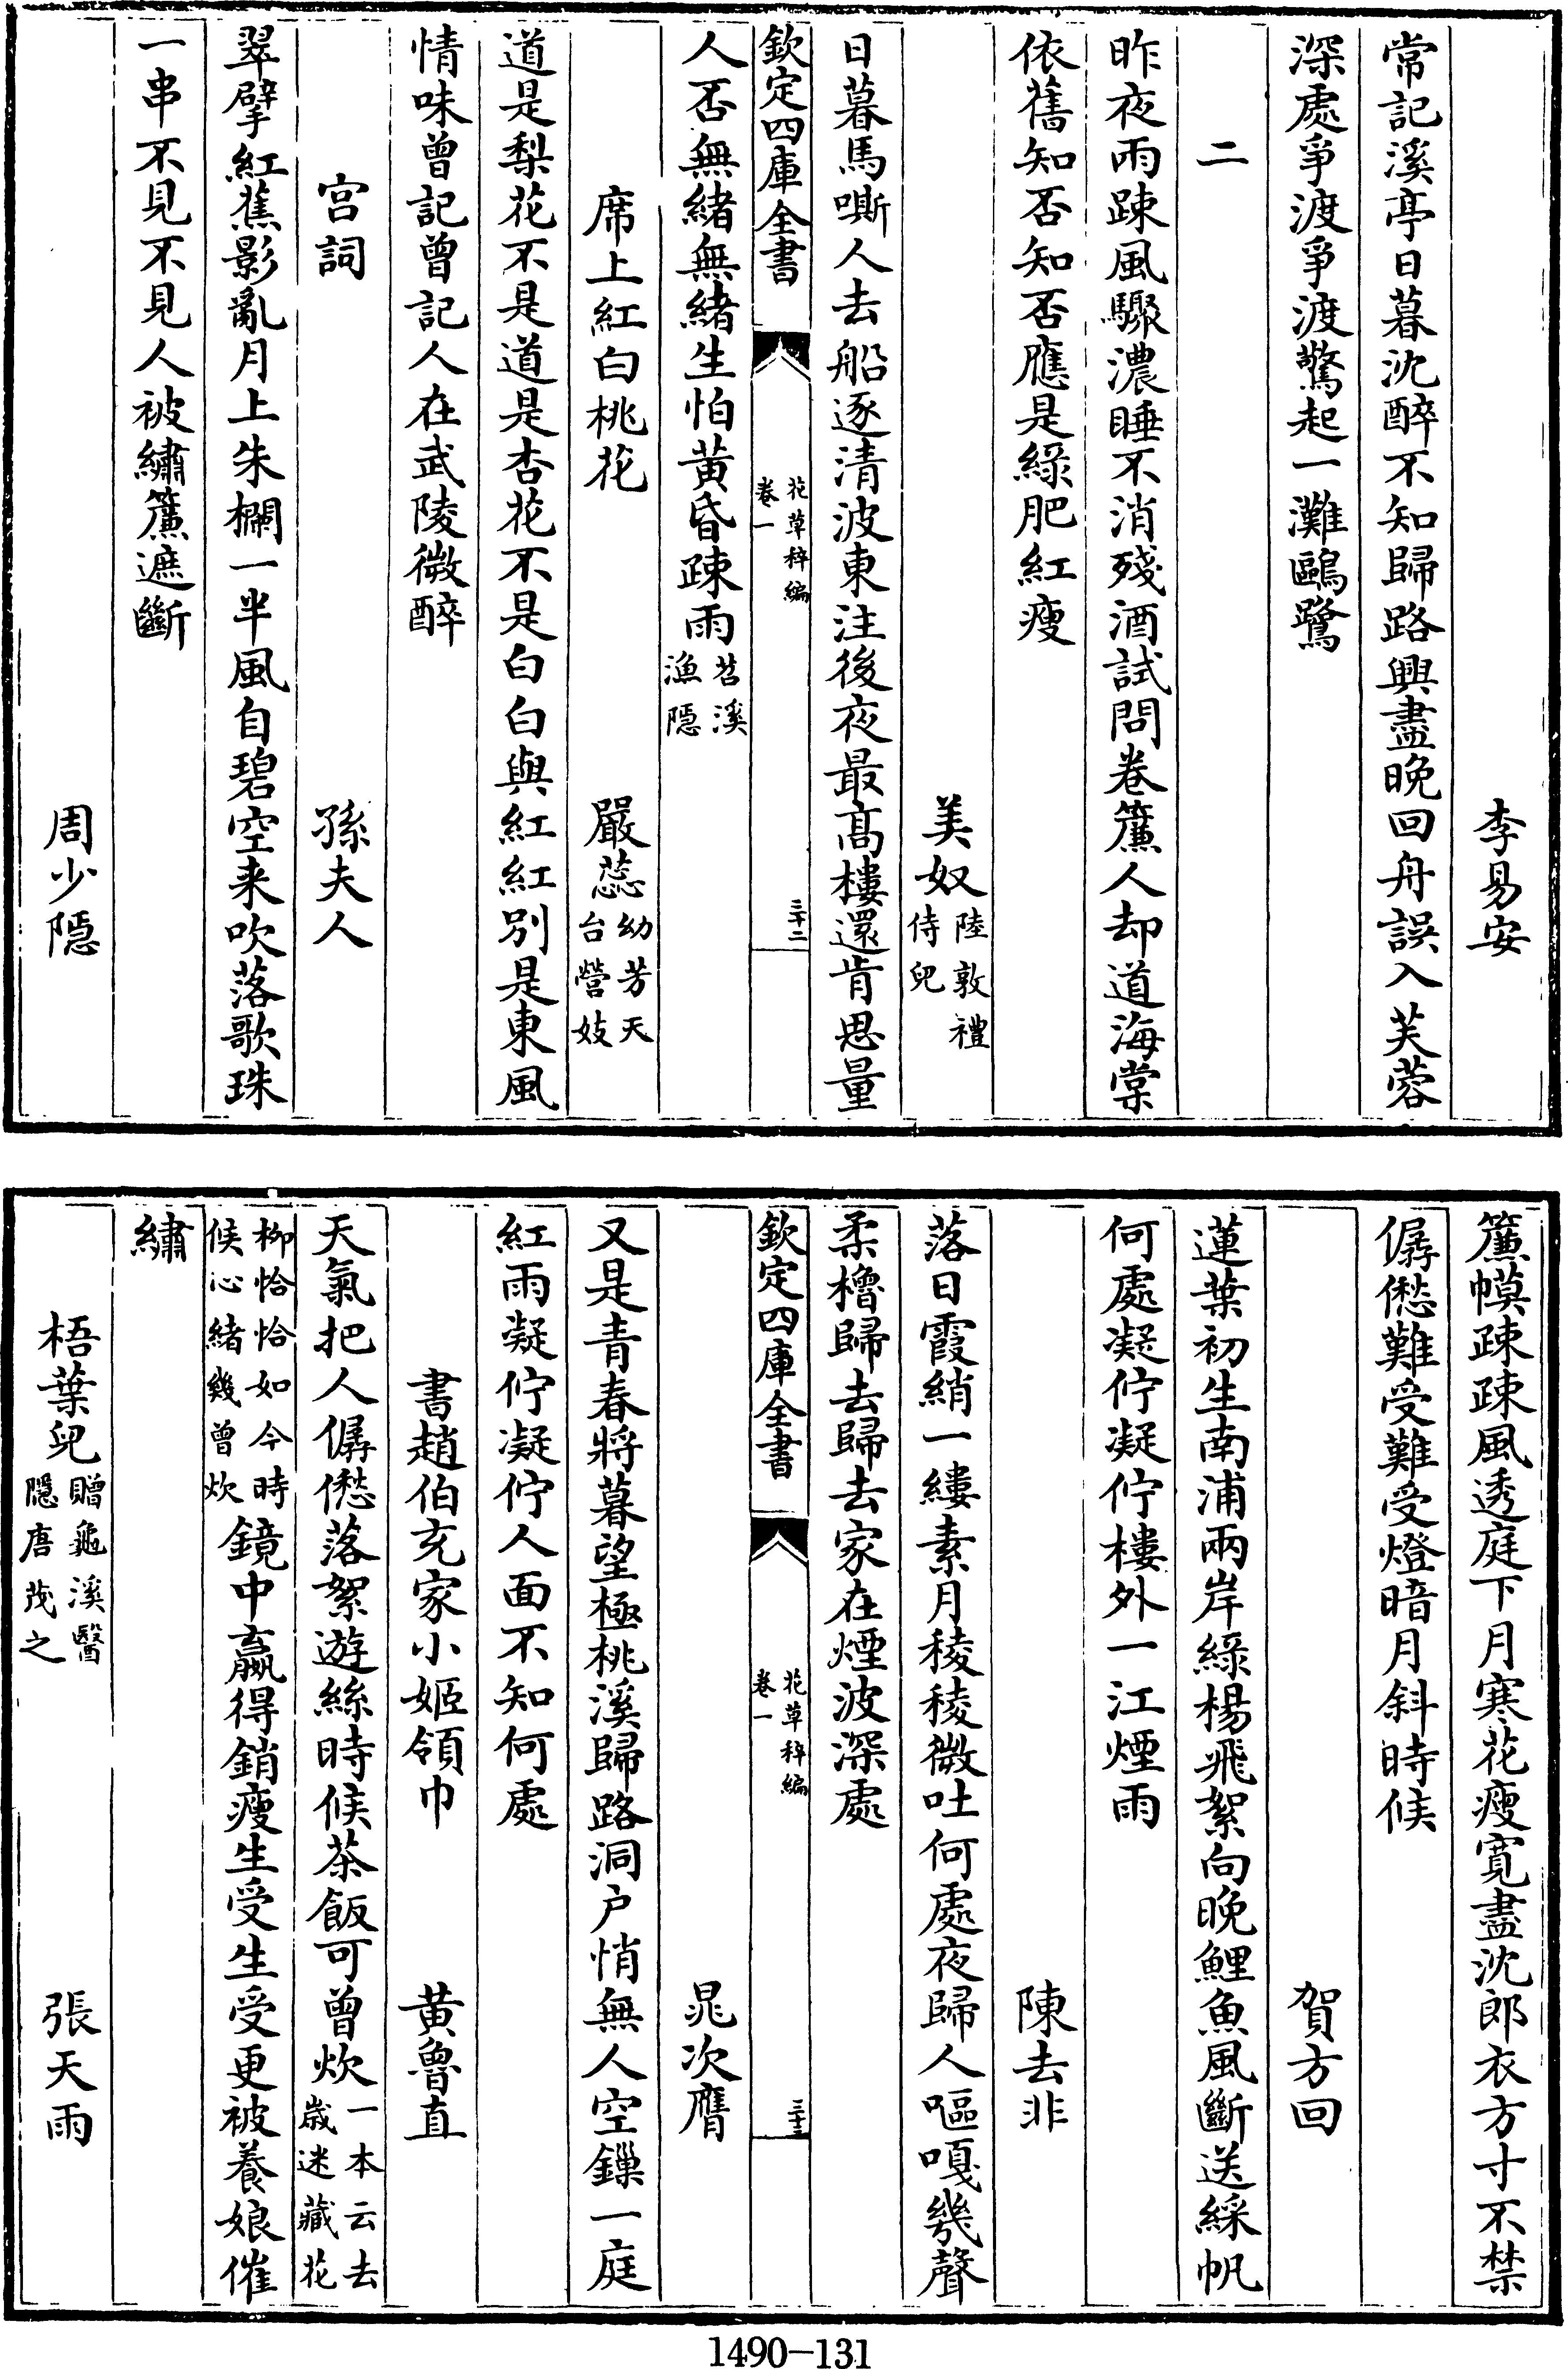 李易安
常記溪亭日暮沈醉不知歸路興盡晚回舟誤入芙蓉
深處爭渡爭渡驚起一灘鷗鷺
二
昨夜雨踈風驟濃睡不消殘酒試問卷簾人却道海棠
依舊知否知否應是綠肥紅瘦
美奴陸敦禮侍兒
日暮馬嘶人去船逐清波東注後夜最高樓還肯思量
欽定四庫全書
花草稡編
卷一
三十二
人否無緒無緒生怕黄昏踈雨苕溪漁隱
席上紅白桃花 嚴蕊幼芳天台營妓
道是梨花不是道是杏花不是白白與紅紅別是東風
情味曾記曾記人在武陵微醉
宫詞 孫夫人
翠擘紅蕉影亂月上朱欄一半風自碧空来吹落歌珠
一串不見不見人被繡簾遮斷
周少隱
簾幙疎疎風透庭下月寒花瘦寛盡沈郎衣方寸不禁
僝僽難受難受燈暗月斜時候
賀方回
蓮葉初生南浦兩岸綠楊飛絮向晚鯉魚風斷送綵帆
何處凝佇凝佇樓外一江煙雨
陳去非
落日霞綃一縷素月稜稜微吐何處夜歸人嘔嘎幾聲
柔櫓歸去歸去家在煙波深處
欽定四庫全書
花草稡編
卷一
三十三
晁次膺
又是青春將暮望極桃溪歸路洞户悄無人空鏁一庭
紅雨凝佇凝佇人面不知何處
書趙伯充家小姬領巾 黄魯直
天氣把人僝僽落絮遊絲時候茶飯可曾炊一本云去歳迷藏花
柳恰恰如今時候心緒幾曾炊鏡中嬴得銷瘦生受生受更被養娘催
繡
梧葉兒贈龜溪醫隱唐茂之 張天雨
1490-131